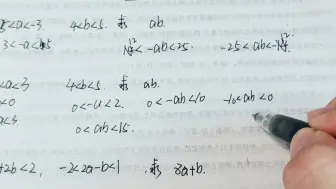 5<a<-3, 4<b<5. 求 ab.
3<-a<5 12<-ab<25. -25<ab<-12
<a<3 4<b<5. 求 ab.
<0 0<-a<2. 0<-ab<10 -10<ab<0
a<3 0<ab<15.
+2b<2, -2<2a-b<1 .求 8a+b.